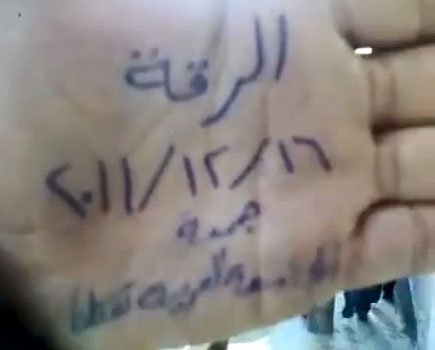 الرقة
٢٠١١/١٢/١٦
جمعة
الجامعة العربية تقتلنا